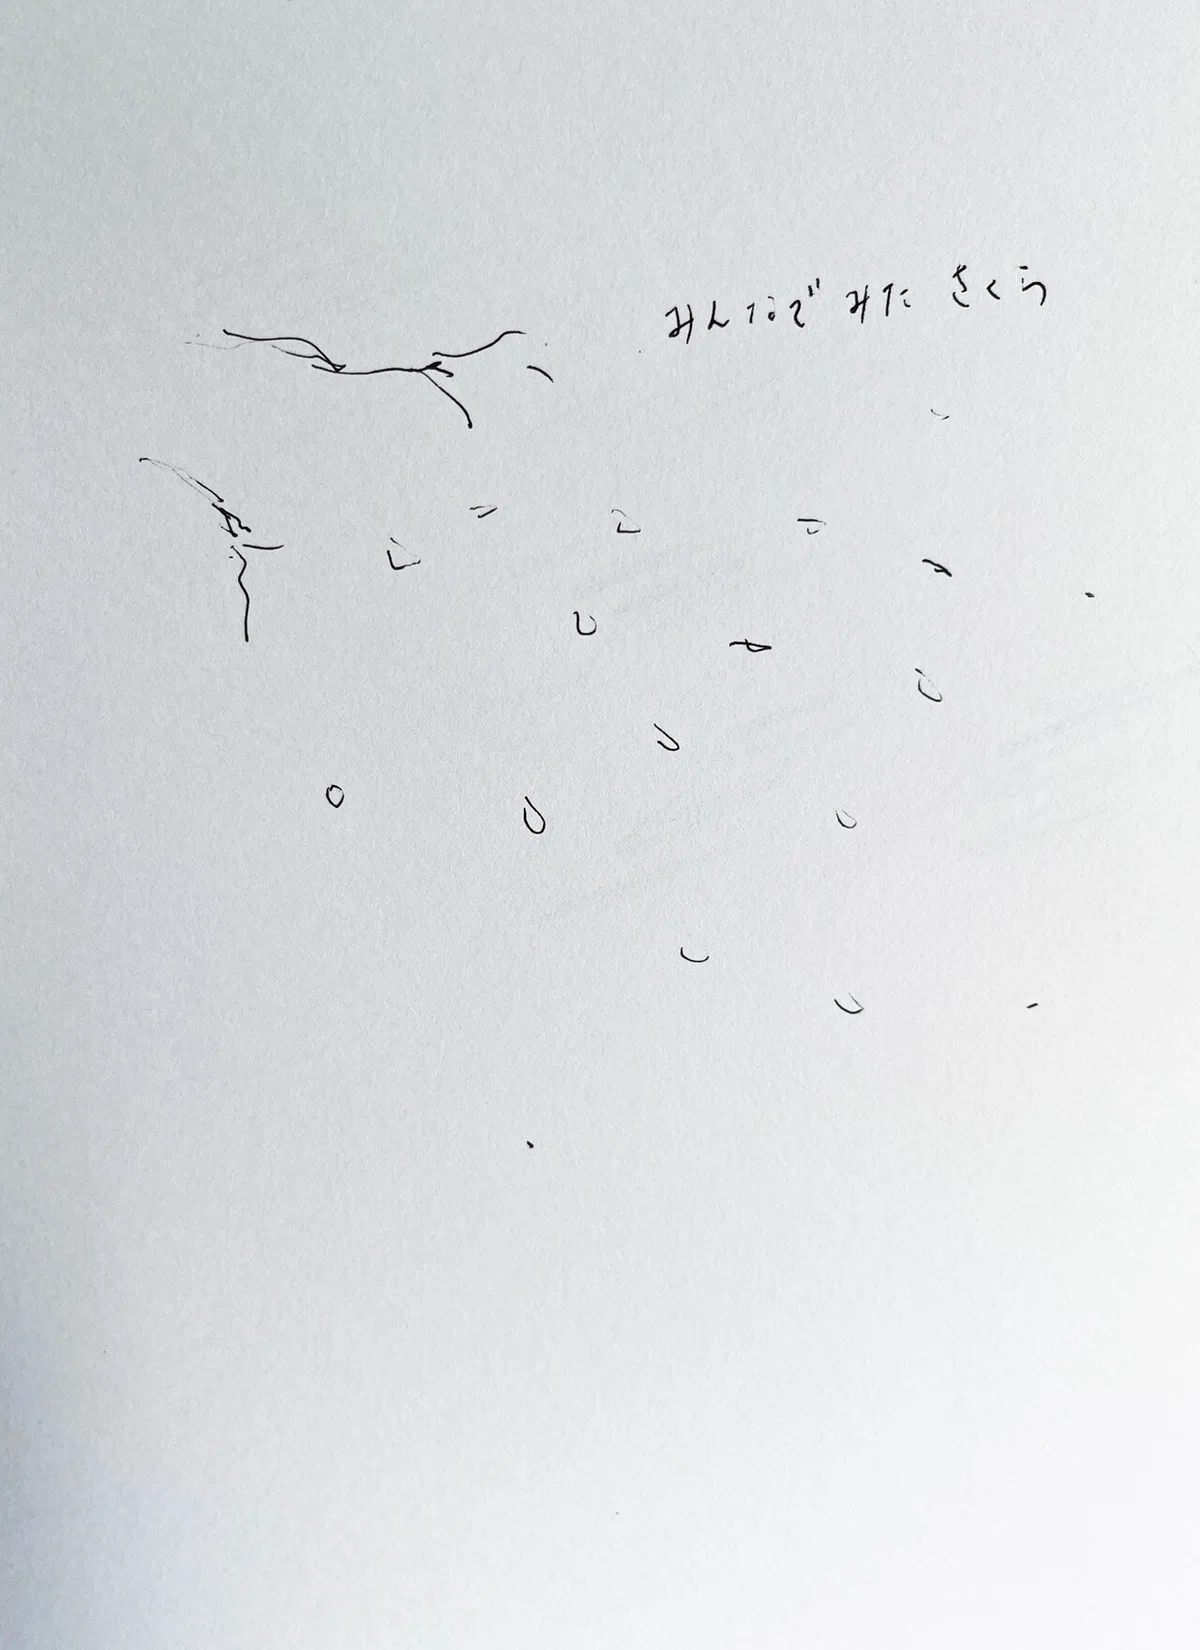 みんなで みた さくら